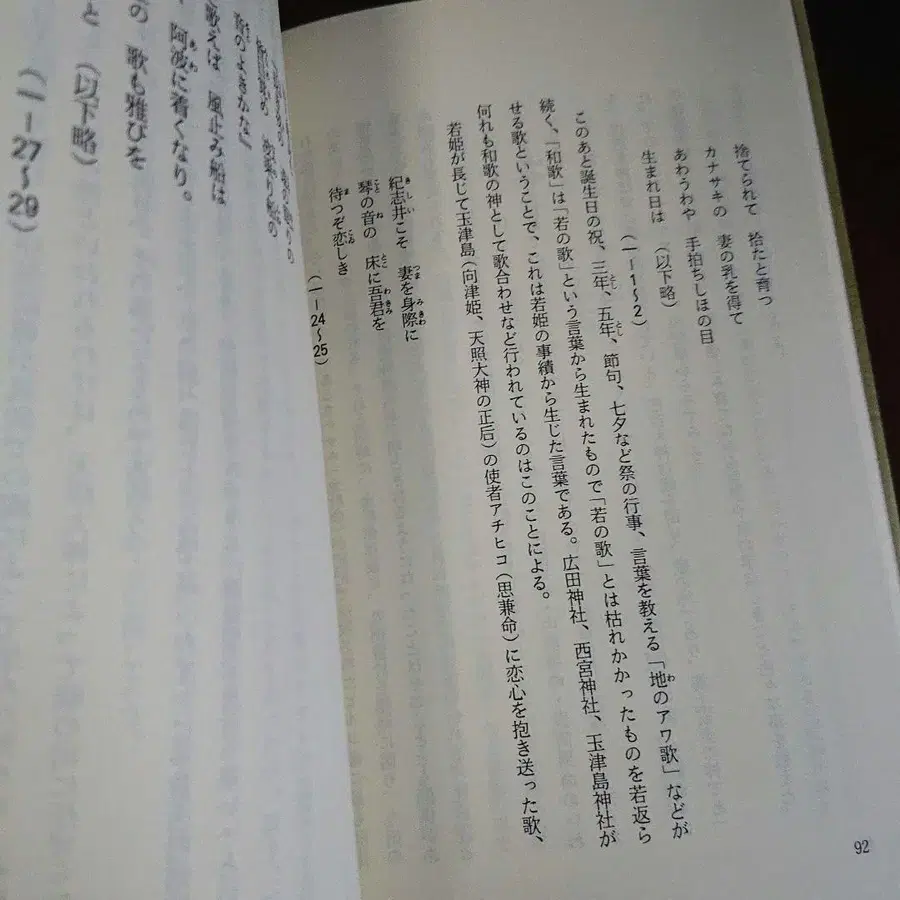 捨てられて　拾たと育つ
カナサキの　妻の乳を得て
あわうわや　手拍ちしほの目
生まれ日は　（以下略）
（一ー1〜2）
このあと誕生日の祝、三年、五年、節句、七夕など祭の行事、言葉を教える「地のアワ歌」などが
続く、「和歌」は「若の歌」という言葉から生まれたもので「若の歌」とは枯れかかったものを若返ら
せる歌ということで、これは若姫の事績から生じた言葉である。広田神社、西宮神社、玉津島神社が
何れも和歌の神として歌合わせなど行われているのはこのことによる。
若姫が長じて玉津島（向津姫、天照大神の正后）の使者アチヒコ（思兼命）に恋心を抱き送った歌、
紀志井こそ　妻を身際に
琴の音の　床に吾君を
待つぞ恋しき
（一ー24〜25）
92
のよきかな」
歌えば　風止み船は
阿波に着くなり。
の　歌も雅びを
と　（以下略）
（一ー27〜29）